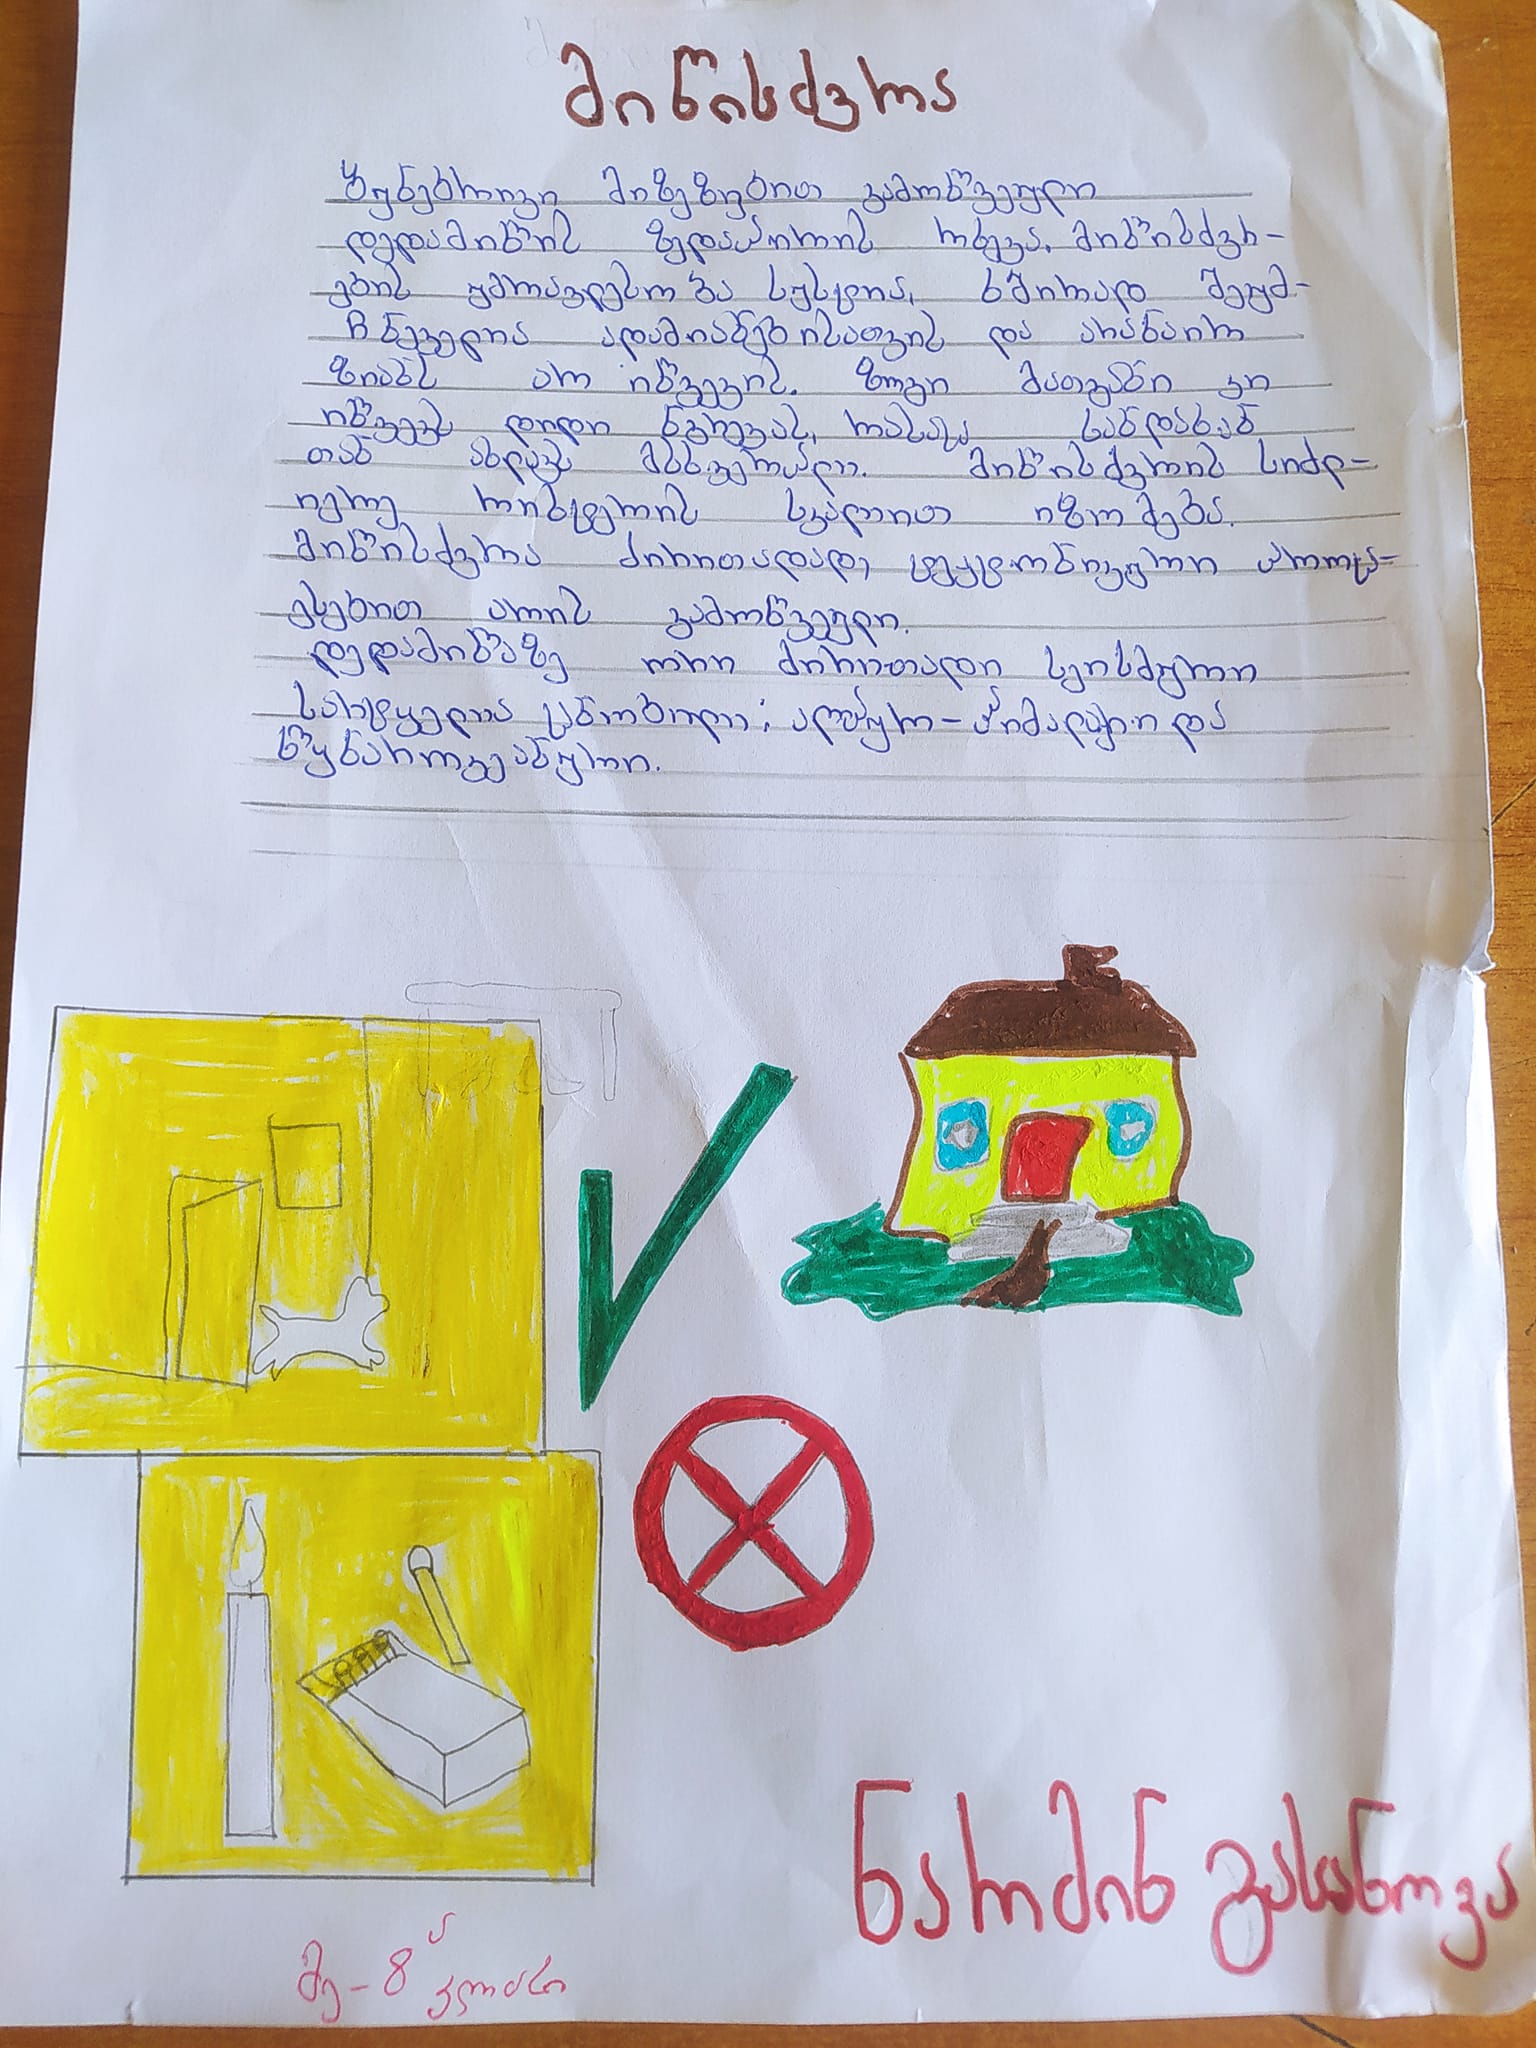 მიწისძვრა
ბუნებრივი მიზეზებით გამოწვეული
დედამიწის ზედაპირის რხევა. მიწისძვრ-
ების უმრავლესობა სუსტია, ხშირად შეუმ-
ჩნეველია ადამიანებისათვის და არანაირ
ზიანს არ იწვევის. ზოგი მათგანი კი
იწვევს დიდი ნგრევას, რასაც სანდახან
თან ახლავს მსხვერპლი. მიწისძვრის სიძლ-
იერე რიხტერის სკალით იზომება.
მიწისძვრა ძირითადად, ტექტონიკური პროცე-
ესებით არის გამოწვეული.
დედამიწაზე ორი ძირითადი სეისმური
სარტყელია ცნობილი; ალპურ-ჰიმალაური და
წყნაროკეანური.
ნარმინ გასანოვა
მე-8ა კლასი